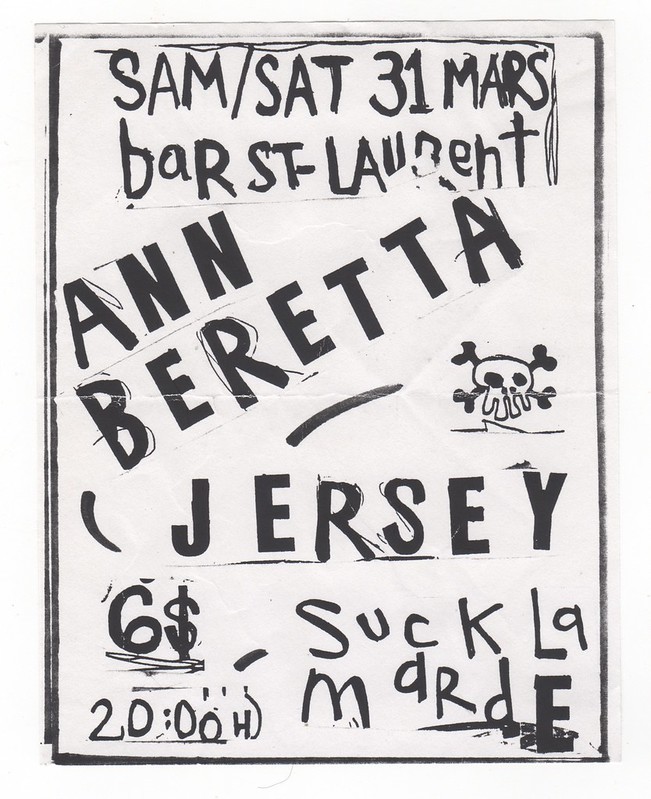 SAM/SAT 31 MARS
baR ST-LAURent
ANN
BERETTA
JERSEY
6$
Suck La
maRdE
20:00H